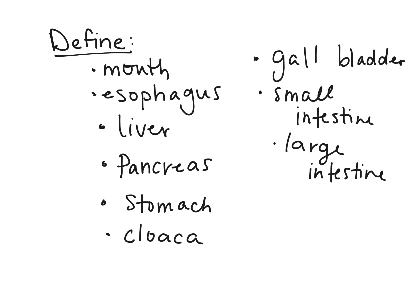 Define:
· mouth
· esophagus
· liver
· Pancreas
· Stomach
· cloaca
· gall bladder
· small
intestine
· large
intestine